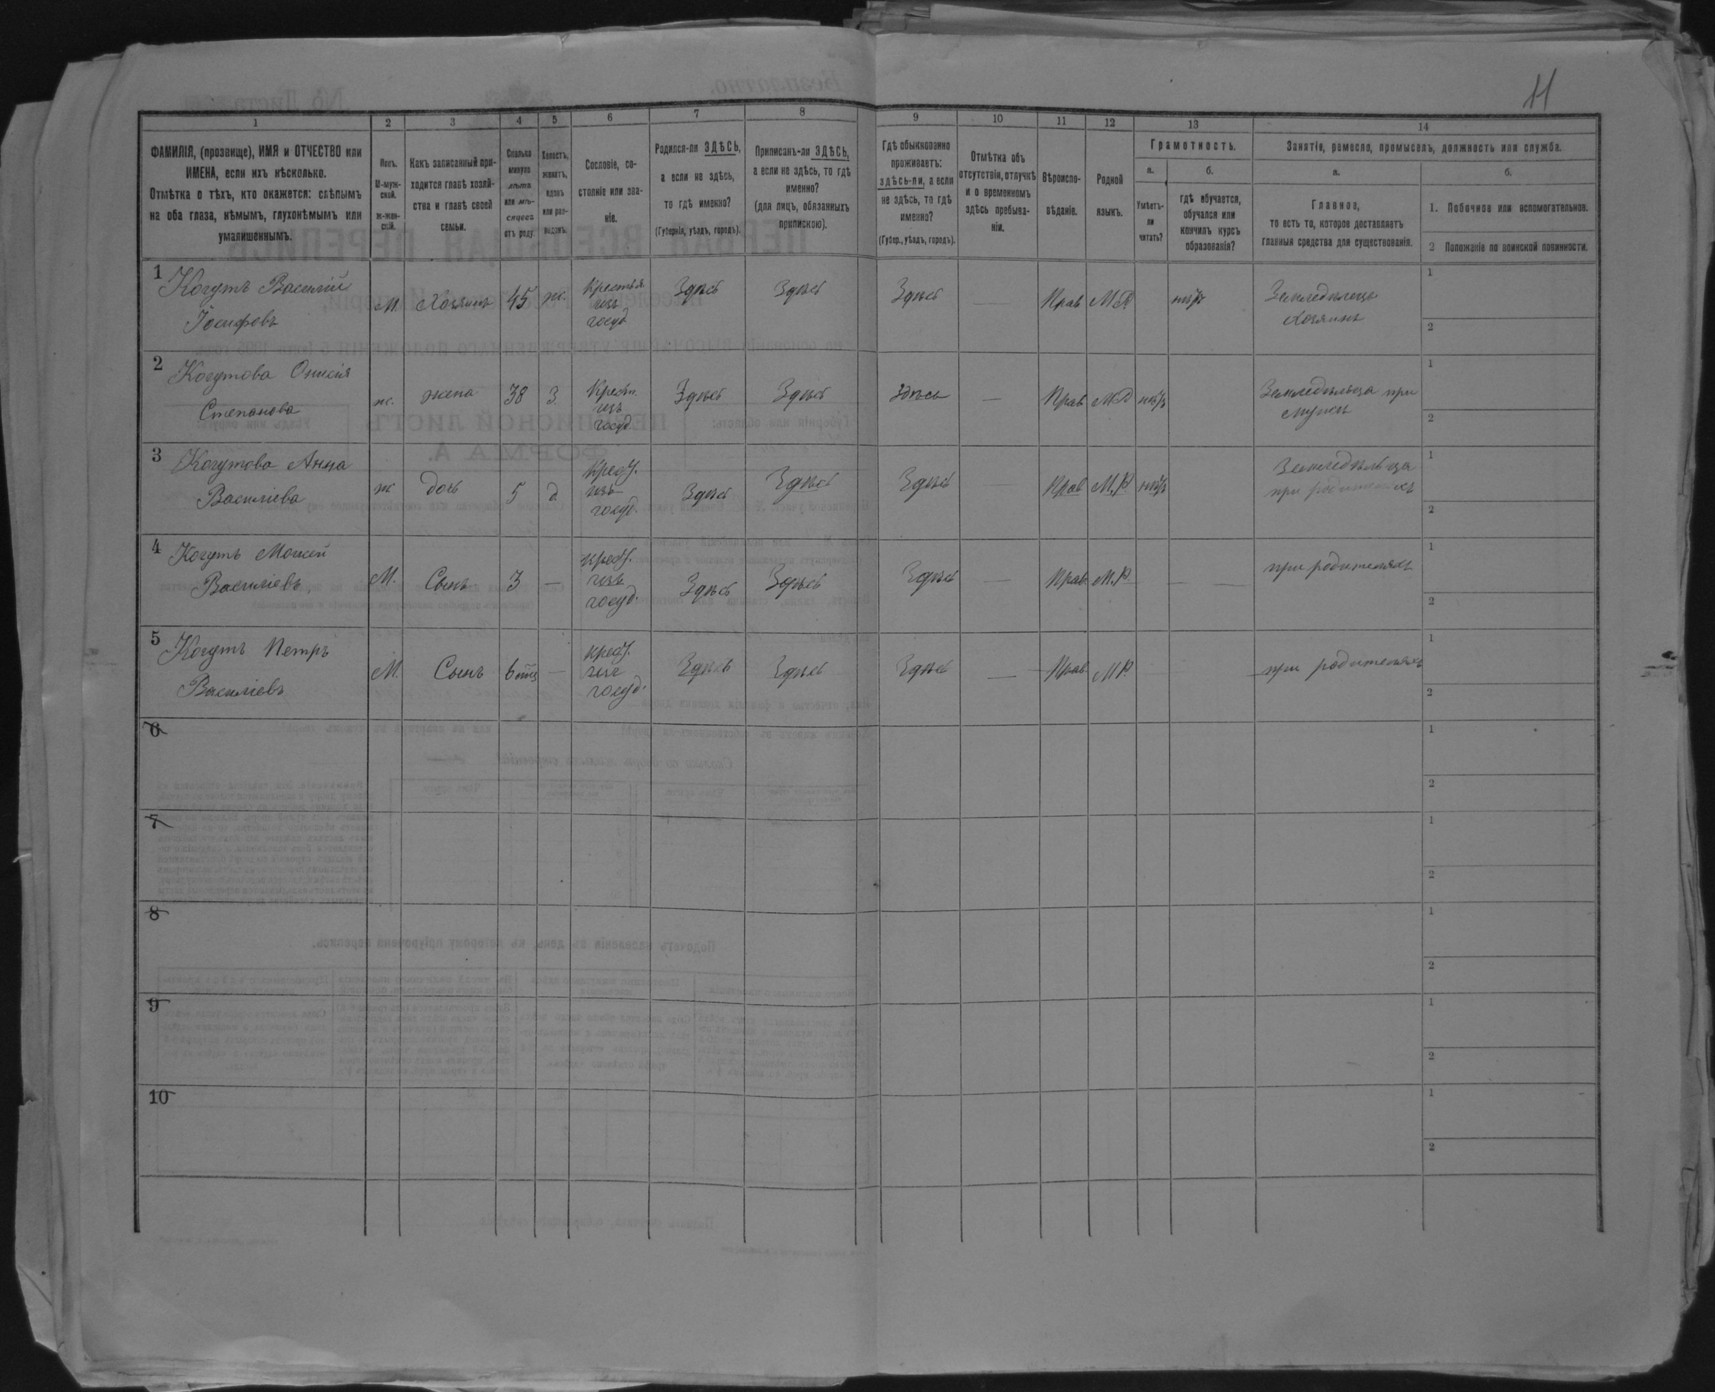 11
1 2 3 4 5 6 7 8 9 10 11 12 13 14
ФАМИЛІЯ, (прозвище), ИМЯ и ОТЧЕСТВО или
ИМЕНА, если ихъ нѣсколько.
Отмѣтка о тѣхъ, кто окажется: слѣпымъ
на оба глаза, нѣмымъ, глухонѣмымъ или
умалишеннымъ.
Полъ.
М-муж-
ской.
ж-жен-
скій.
Какъ записанный при-
ходится главѣ хозяй-
ства и главѣ своей
семьи.
Сколько
минуло
лѣтъ
или мѣ-
сяцевъ
отъ роду.
Холостъ,
женатъ,
вдовъ
или раз-
веденъ.
Сословіе, со-
стояніе или зва-
ніе.
Родился-ли ЗДѢСЬ,
а если не здѣсь,
то гдѣ именно?
(Губернія, уѣздъ, городъ).
Приписанъ-ли ЗДѢСЬ,
а если не здѣсь, то гдѣ
именно?
(для лицъ, обязанныхъ
припискою).
Гдѣ обыкновенно
проживаетъ:
здѣсь-ли, а если
не здѣсь, то гдѣ
именно?
(Губер., уѣздъ, городъ).
Отмѣтка объ
отсутствіи, отлучкѣ
и о временномъ
здѣсь пребыва-
ніи.
Вѣроиспо-
вѣданіе.
Родной
языкъ.
Грамотность.
а.
Умѣетъ-
ли
читать?
б.
гдѣ обучается,
обучался или
кончилъ курсъ
образованія?
Занятіе, ремесло, промыселъ, должность или служба.
а.
Главное,
то есть то, которое доставляетъ
главныя средства для существованія.
б.
1. Побочное или вспомогательное.
2 Положеніе по воинской повинности.
1 Когутъ Василій
Іосифовъ
М. Хозяинъ 45 ж.
Крестья
изъ
госуд
Здѣсь Здѣсь Здѣсь — Прав М.Р нѣтъ
Земледѣлецъ
Хозяинъ
1
2
2 Когутова Онисія
Степанова
ж. жена 38 З.
Крест.
изъ
госуд
Здѣсь Здѣсь Здѣсь — Прав М.Р нѣтъ
Земледѣльца при
мужѣ
1
2
3 Когутова Анна
Василіева
ж дочь 5 д
Крест.
изъ
госуд.
Здѣсь Здѣсь Здѣсь — Прав М.Р нѣтъ
Земледѣльца
при родителяхъ
1
2
4 Когутъ Моисей
Василіевъ
М. Сынъ 3 —
Крест.
изъ
госуд.
Здѣсь Здѣсь Здѣсь — Прав М.Р. — —
при родителяхъ
1
2
5 Когутъ Петръ
Василіевъ
М. Сынъ 6 мѣс —
Крест.
изъ
госуд.
Здѣсь Здѣсь Здѣсь — Прав. М.Р.
при родителяхъ
1
2
6
1
2
7
1
2
8
1
2
9
1
2
10
1
2